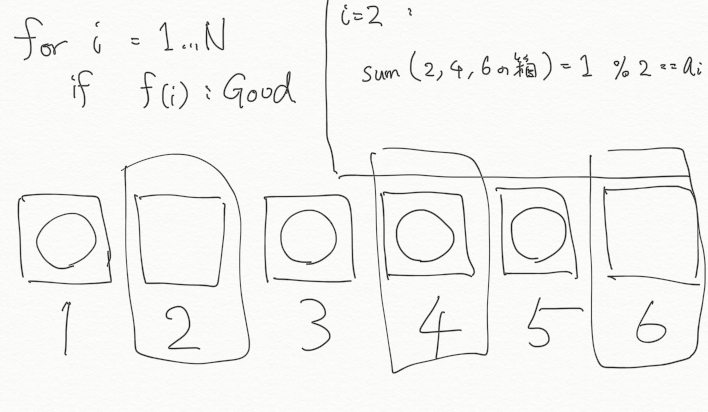 for i = 1...N
if f(i) : Good
i=2 :
sum (2,4,6の箱) = 1 % 2 == ai
1 2 3 4 5 6